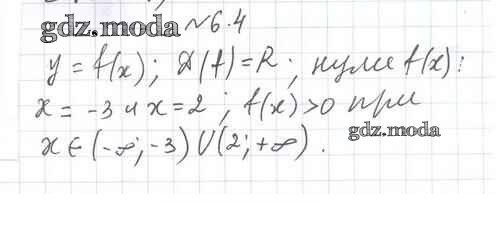 gdz.moda №6.4
y = f(x); D(f) = R; нули f(x):
x = -3 и x = 2; f(x) > 0 при
gdz.moda
x ∈ (-∞; -3) ∪ (2; +∞).